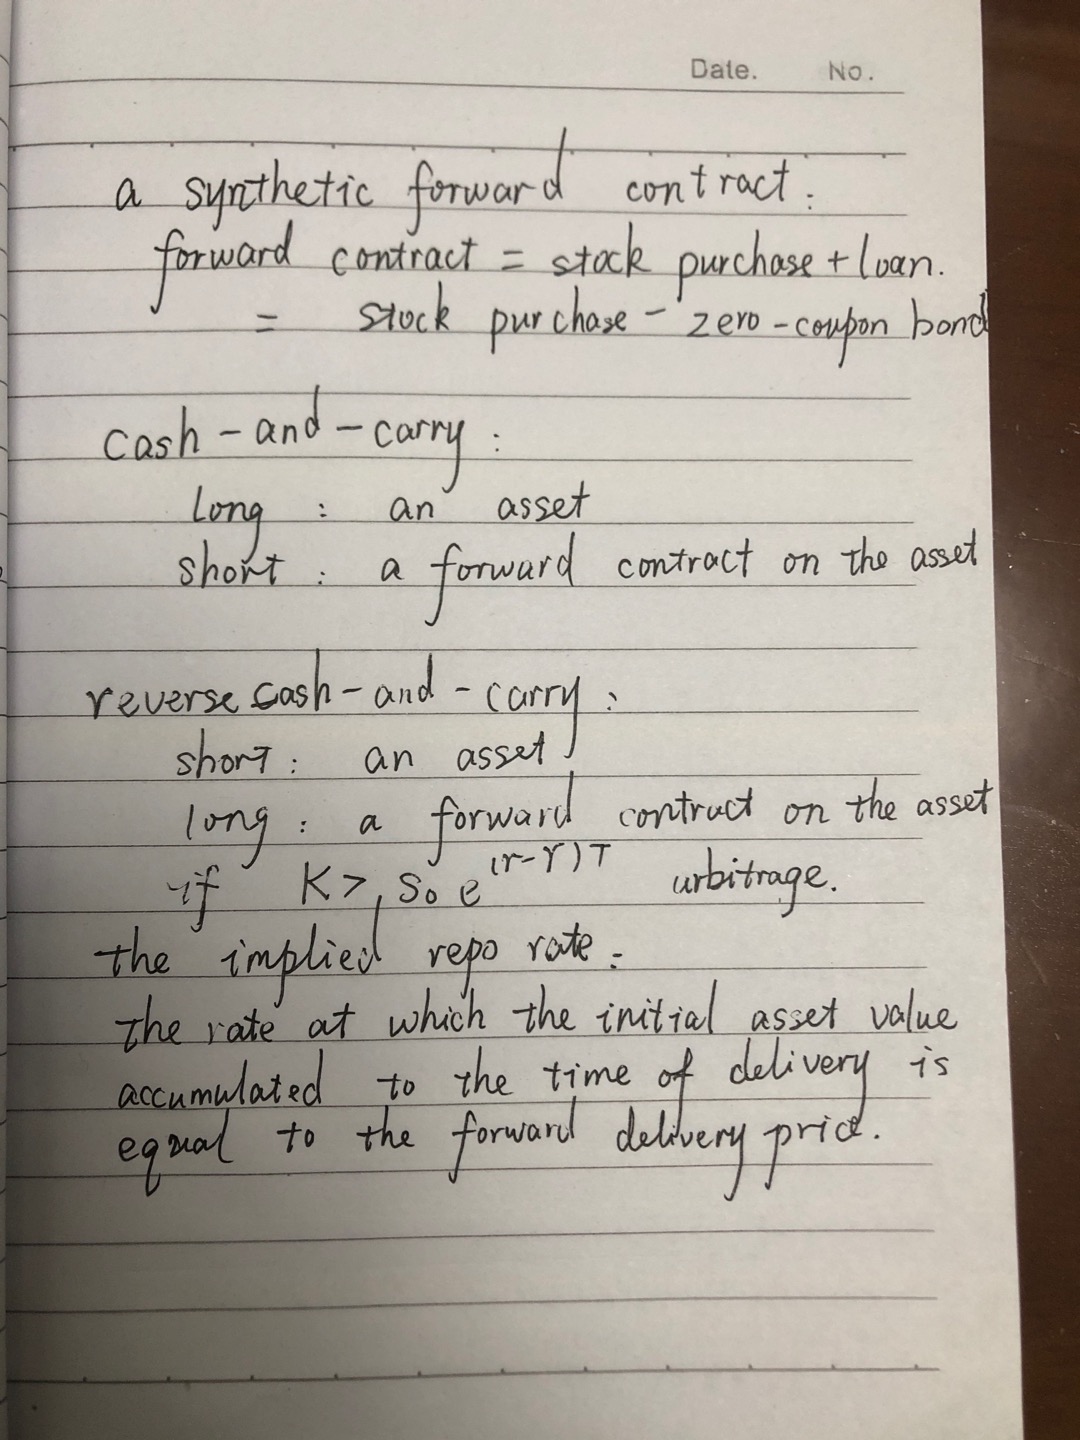 Date. No.
a synthetic forward contract:
forward contract = stock purchase + loan.
= stock purchase - zero-coupon bond
cash-and-carry:
long: an asset
short: a forward contract on the asset
reverse cash-and-carry:
short: an asset
long: a forward contract on the asset
if K > S₀ e^(r-γ)T arbitrage.
the implied repo rate:
the rate at which the initial asset value
accumulated to the time of delivery is
equal to the forward delivery price.